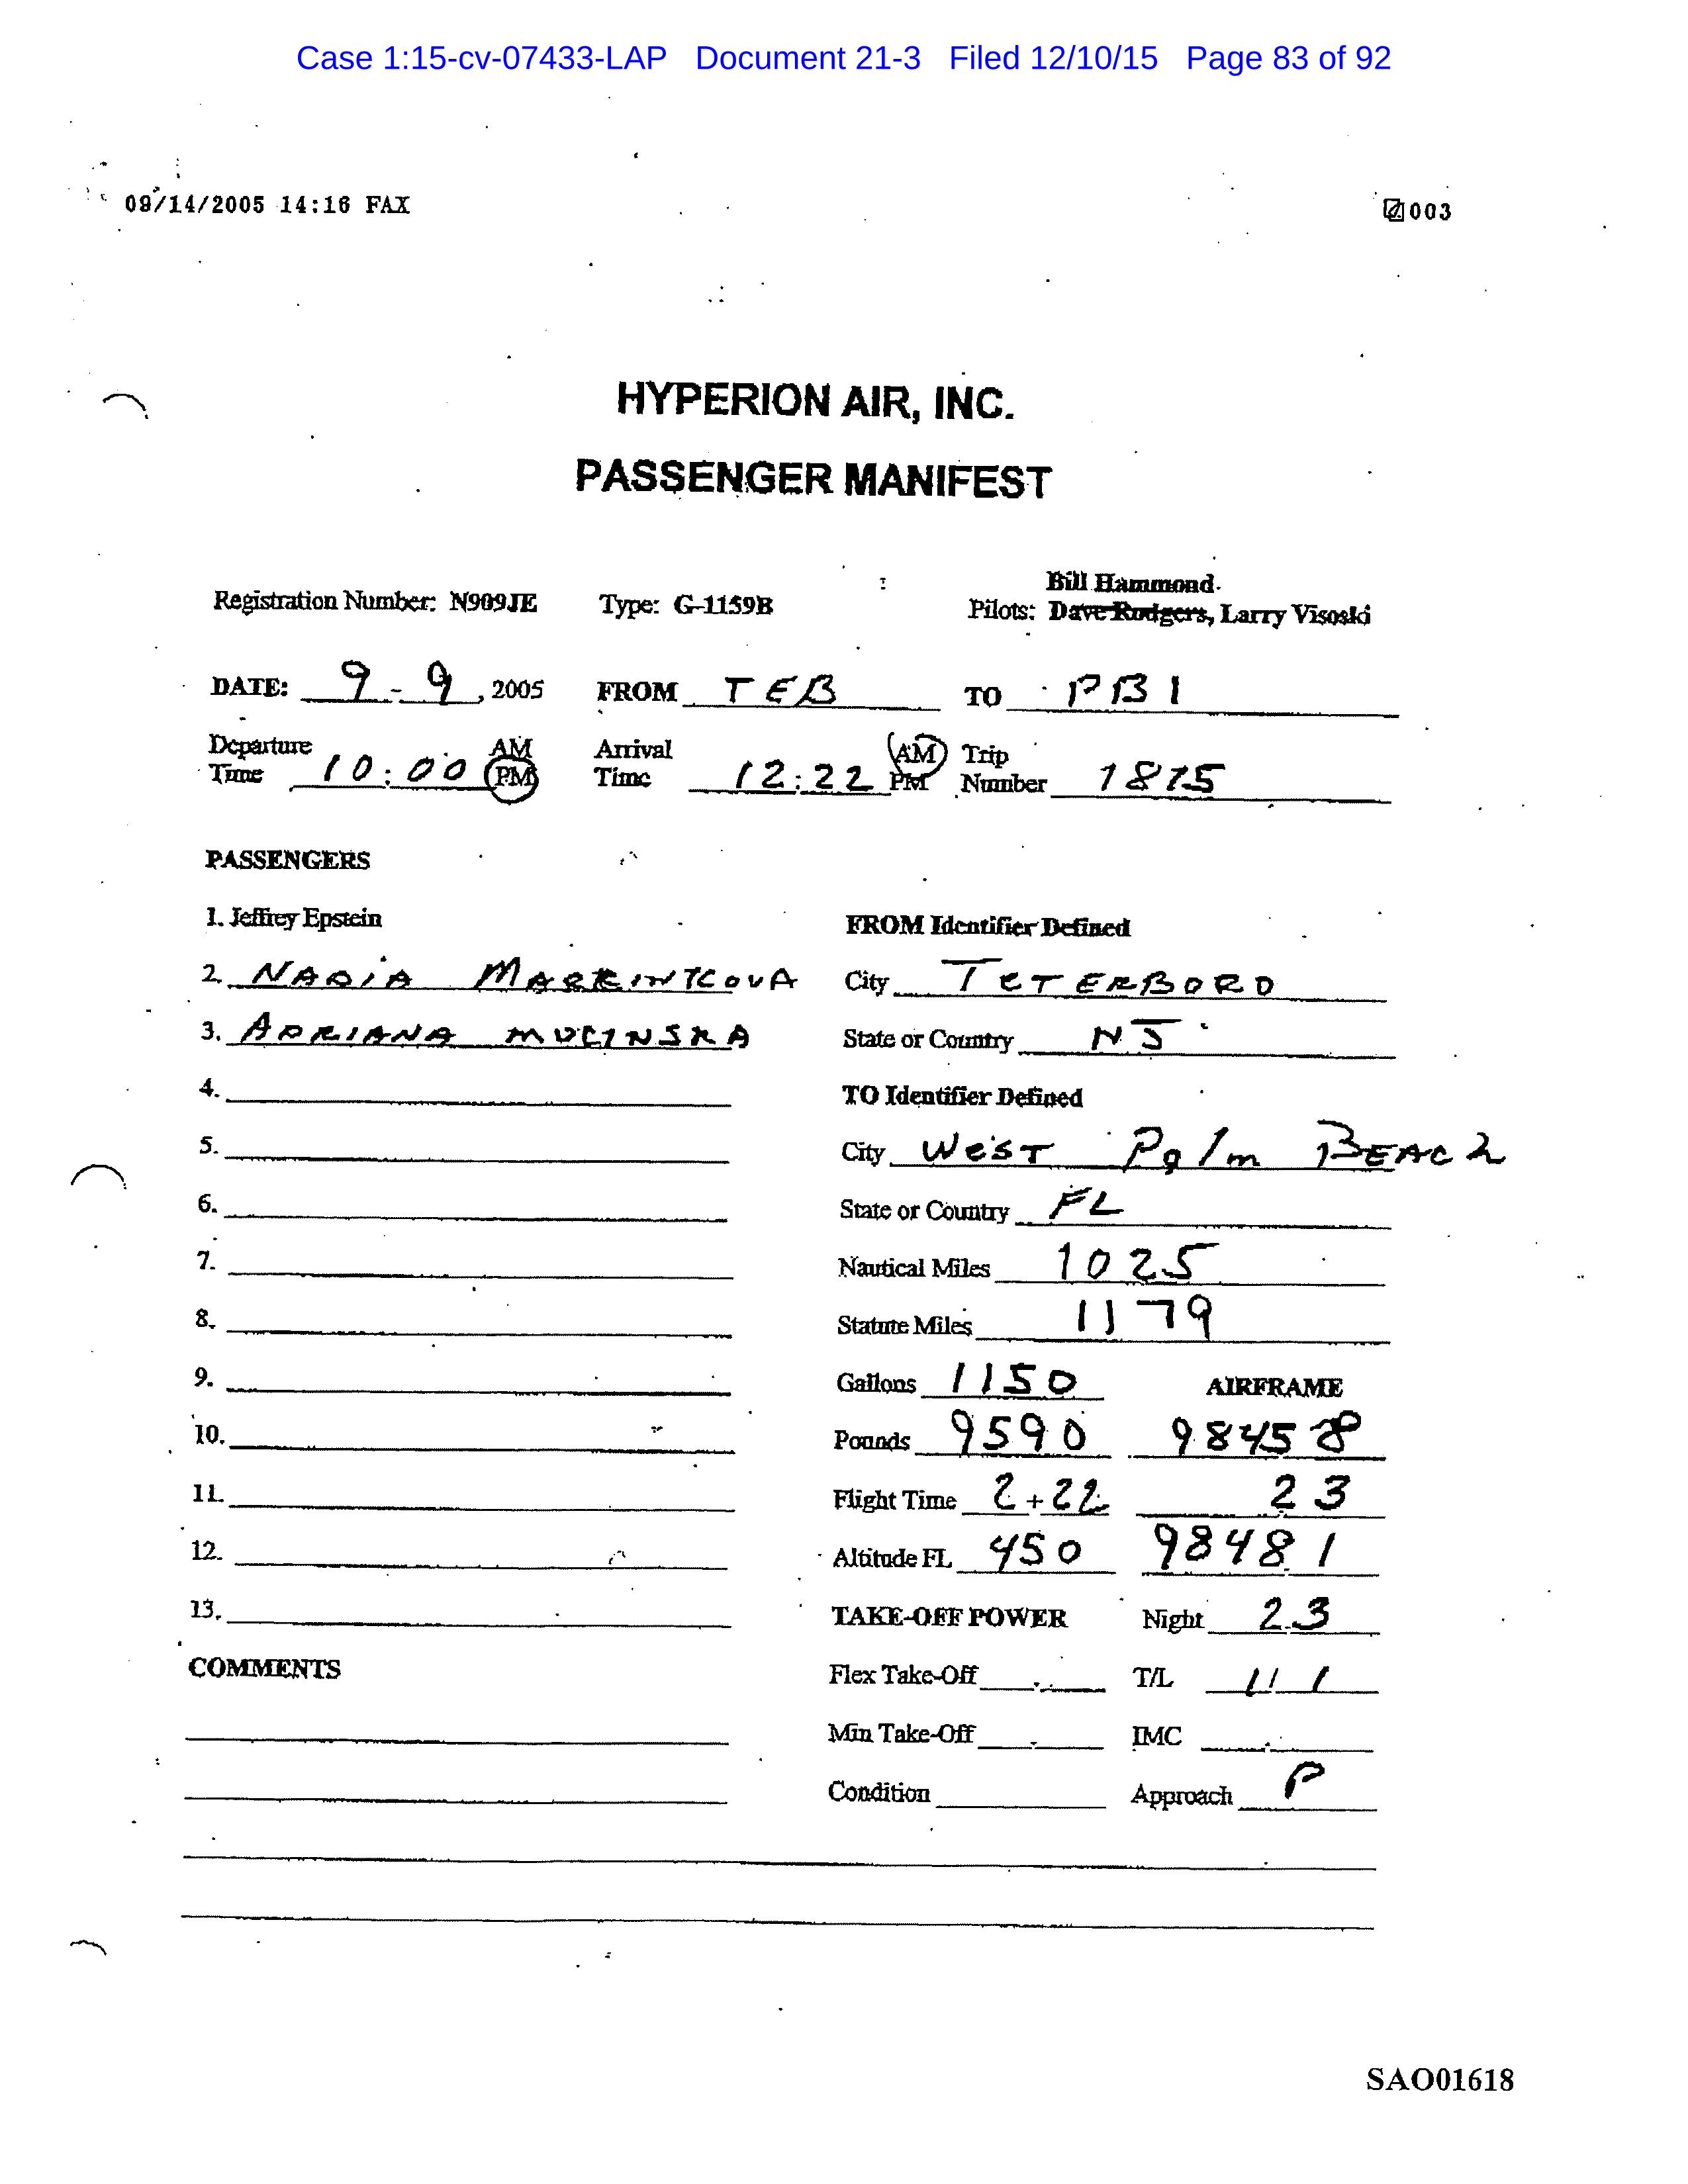 Case 1:15-cv-07433-LAP Document 21-3 Filed 12/10/15 Page 83 of 92
09/14/2005 14:16 FAX 003
HYPERION AIR, INC.
PASSENGER MANIFEST
Bill Hammond.
Registration Number: N909JE Type: G-1159B Pilots: Dave Rodgers, Larry Visoski
DATE: 9 - 9, 2005 FROM TEB TO PBI
Departure Time 10:00 AM PM Arrival Time 12:22 AM PM Trip Number 1875
PASSENGERS
1. Jeffrey Epstein FROM Identifier Defined
2. NADIA MARKINTCOVA City TETERBORO
3. ADRIANA MUCINSKA State or Country NJ
4. TO Identifier Defined
5. City WEST Palm BEACh
6. State or Country FL
7. Nautical Miles 1025
8. Statute Miles 1179
9. Gallons 1150 AIRFRAME
10. Pounds 9590 98458
11. Flight Time 2+22 23
12. Altitude FL 450 98481
13. TAKE-OFF POWER Night 2.3
COMMENTS Flex Take-Off T/L 1/1
Min Take-Off IMC
Condition Approach P
SAO01618